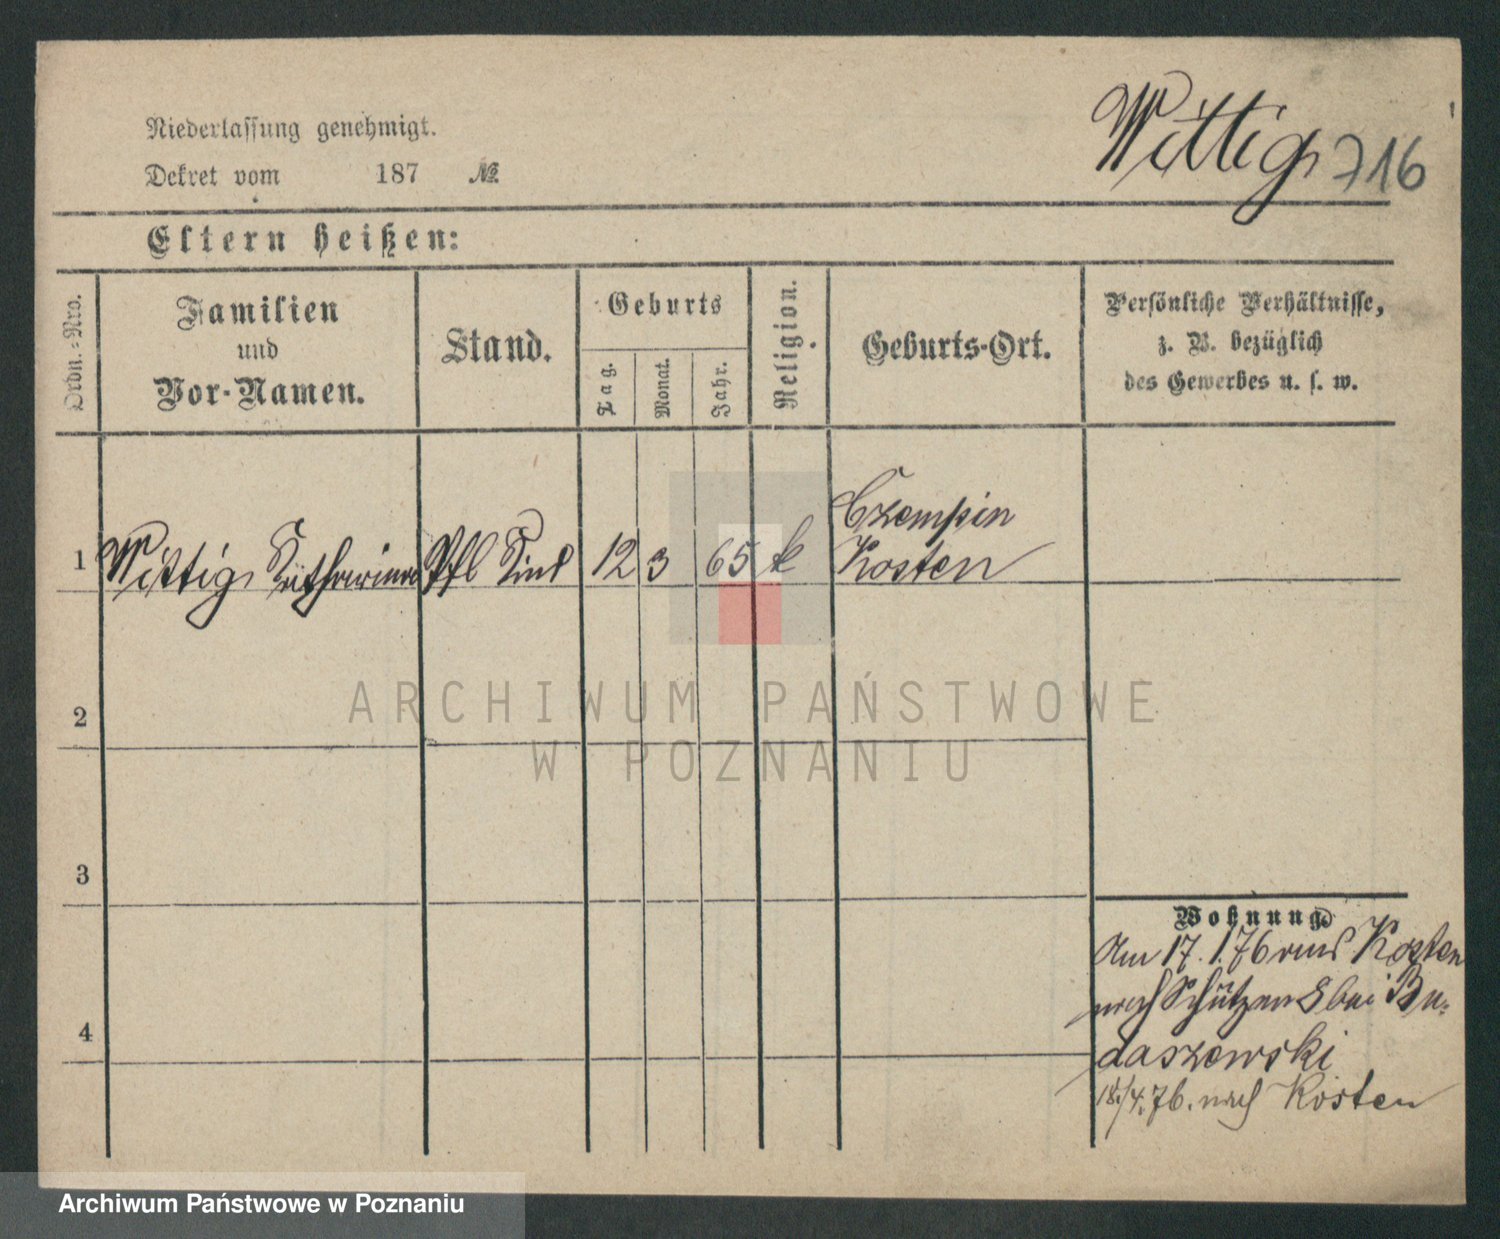 Wittig 716
Niederlassung genehmigt.
Dekret vom 187 №
Eltern heißen:
Ordn.-Nro.
Familien
und
Vor-Namen.
Stand.
Geburts
Tag.
Monat.
Jahr.
Religion.
Geburts-Ort.
Persönliche Verhältnisse,
z. B. bezüglich
des Gewerbes u. s. w.
Czempin
1 Wittig Katharina Pfl Kind 12 3 65 k Kosten
2
3
4
Wohnung.
Am 17.1.76 aus Kosten
nach Schützen 8 bei Bu-
daszewski
18/4.76. nach Kosten
ARCHIWUM PAŃSTWOWE
W POZNANIU
Archiwum Państwowe w Poznaniu